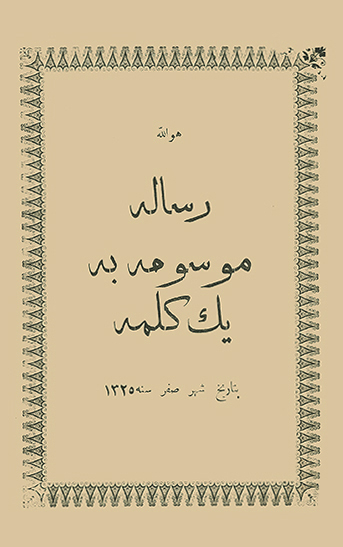 هو الله
رساله
موسومه به
یك كلمه
بتاریخ شهر صفر سنه ۱۳۲۵